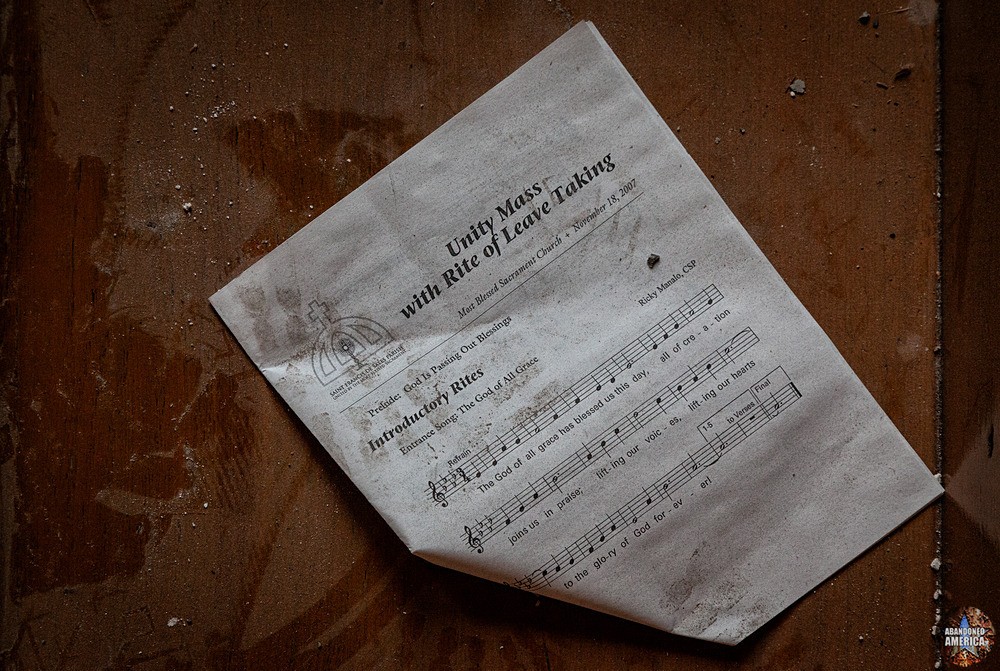 Unity Mass
with Rite of Leave Taking
Most Blessed Sacrament Church + November 18, 2007
SAINT FRANCIS DE SALES PARISH
UNITED BY THE MOST BLESSED SACRAMENT
Prelude: God Is Passing Out Blessings
Introductory Rites
Entrance Song: The God of All Grace
Ricky Manalo, CSP
Refrain
The God of all grace has blessed us this day, all of cre - a - tion
joins us in praise; lift-ing our voic - es, lift-ing our hearts
1-5 to Verses Final
to the glo-ry of God for - ev - er!
ABANDONED
AMERICA